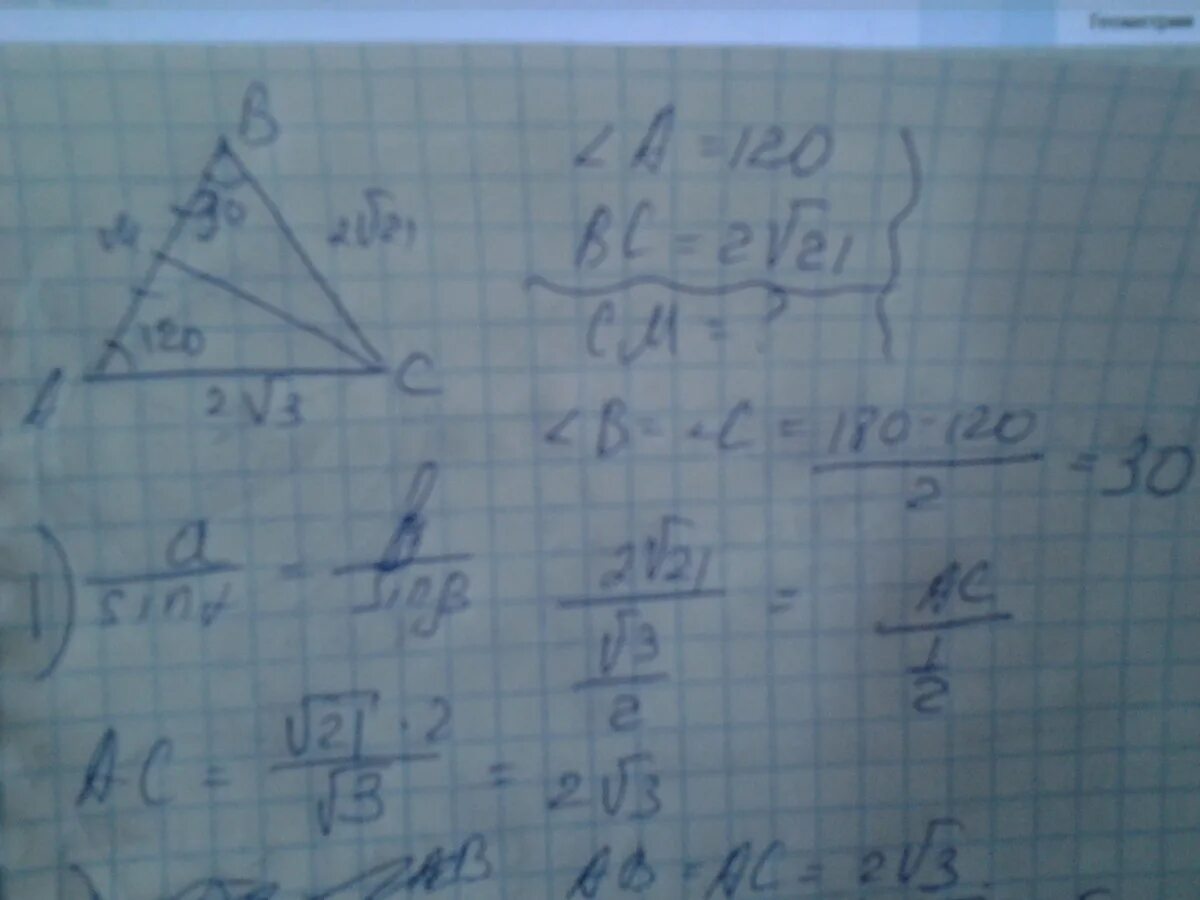 Геометрия
B
30
2√21
M
120
A
C
2√3
∠A = 120
BC = 2√21
CM = ?
∠B = ∠C = (180 - 120)/2 = 30
1) a/sinα = b/sinβ
2√21/(√3/2) = AC/(1/2)
AC = (√21 · 2)/√3 = 2√3
AB
AB = AC = 2√3